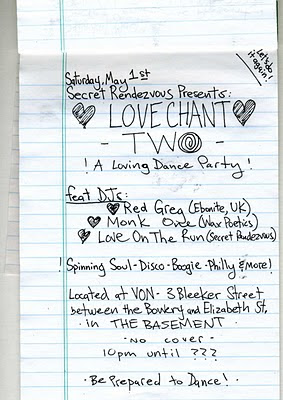 Let's do
it again!
Saturday, May 1st
Secret Rendezvous Presents:
LOVE CHANT
- TWO -
! A Loving Dance Party !
feat DJs:
Red Greg (Ebonite, UK)
Monk One (Wax Poetics)
Love On The Run (Secret Rendezvous)
! Spinning Soul - Disco - Boogie - Philly & More!
Located at VON - 3 Bleeker Street
between the Bowery and Elizabeth St,
in THE BASEMENT
- no cover -
10pm until ???
· Be Prepared to Dance! ·